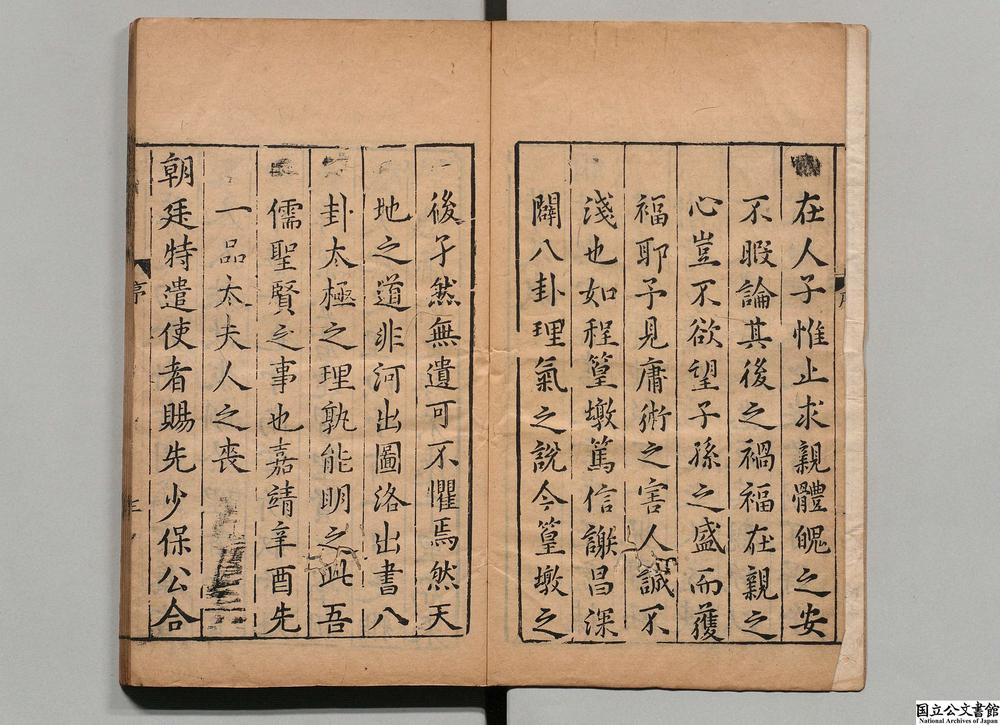 在人子惟止求親體魄之安
不暇論其後之禍福在親之
心豈不欲望子孫之盛而獲
福耶予見庸術之害人誠不
淺也如程篁墩篤信謝昌深
闢八卦理氣之說今篁墩之
後孑然無遺可不懼焉然天
地之道非河出圖洛出書八
卦太極之理孰能明之此吾
儒聖賢之事也嘉靖辛酉先
一品太夫人之喪
朝廷特遣使者賜先少保公合
序
国立公文書館
National Archives of Japan